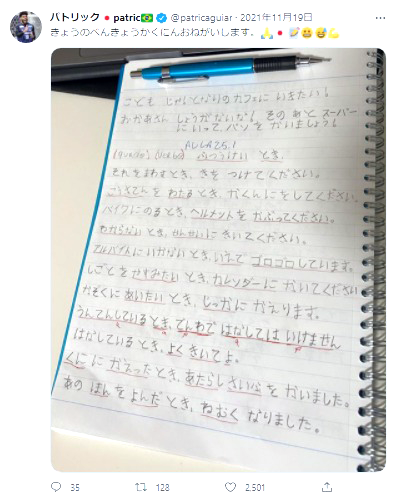 パトリック 🔴 patric🇧🇷 @patricaguiar · 2021年11月19日
きょうのべんきょうかくにんおねがいします。
こども じゃあとなりのカフェに いきたい!
おかあさん しょうがないな! そのあと スーパー
にいって、パンを かいましょう!
AULA 25.1
(quando) (verbo) ふつうけい とき、
それを まわすとき、きを つけてください。
こうさてんを わたるとき、かくにんをしてください。
バイクにのるとき、ヘルメットを かぶってください。
わからないとき、せんせいに きいてください。
アルバイトに いかないとき、いえで ゴロゴロしています。
しごとを やすみたい とき、カレンダーに かいてください
かぞくに あいたい とき、じっかに かえります。
うんてんしているとき、でんわで はなしては いけません
はなしているとき、よく きいてよ。
くにに かえったとき、あたらし さいふを かいました。
あの ほんを よんだ とき、ねむく なりました。
35 128 2,501